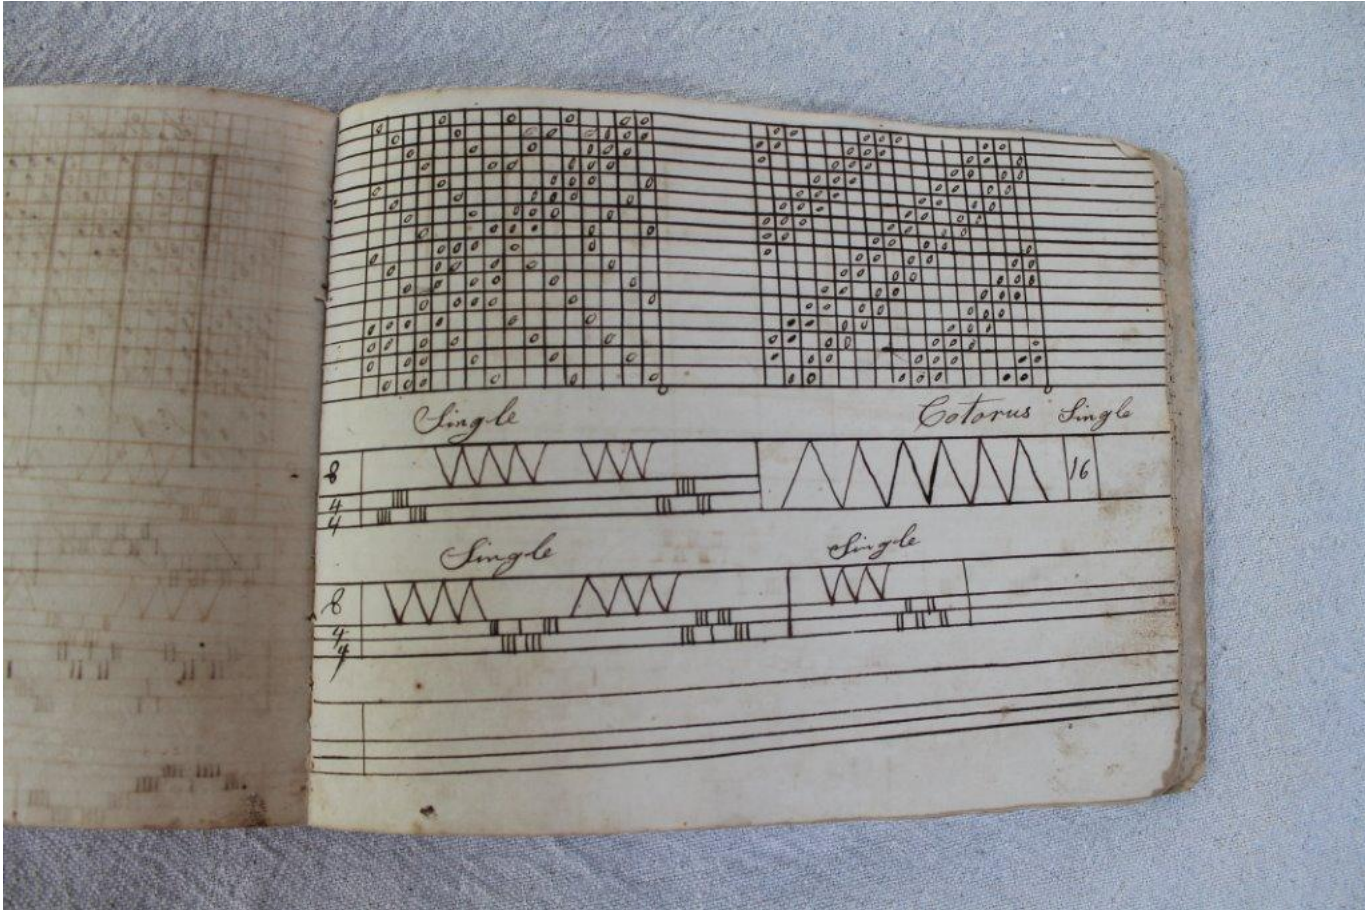 Single
Cotorus Single
8
4
4
16
Single
Single
8
4
4